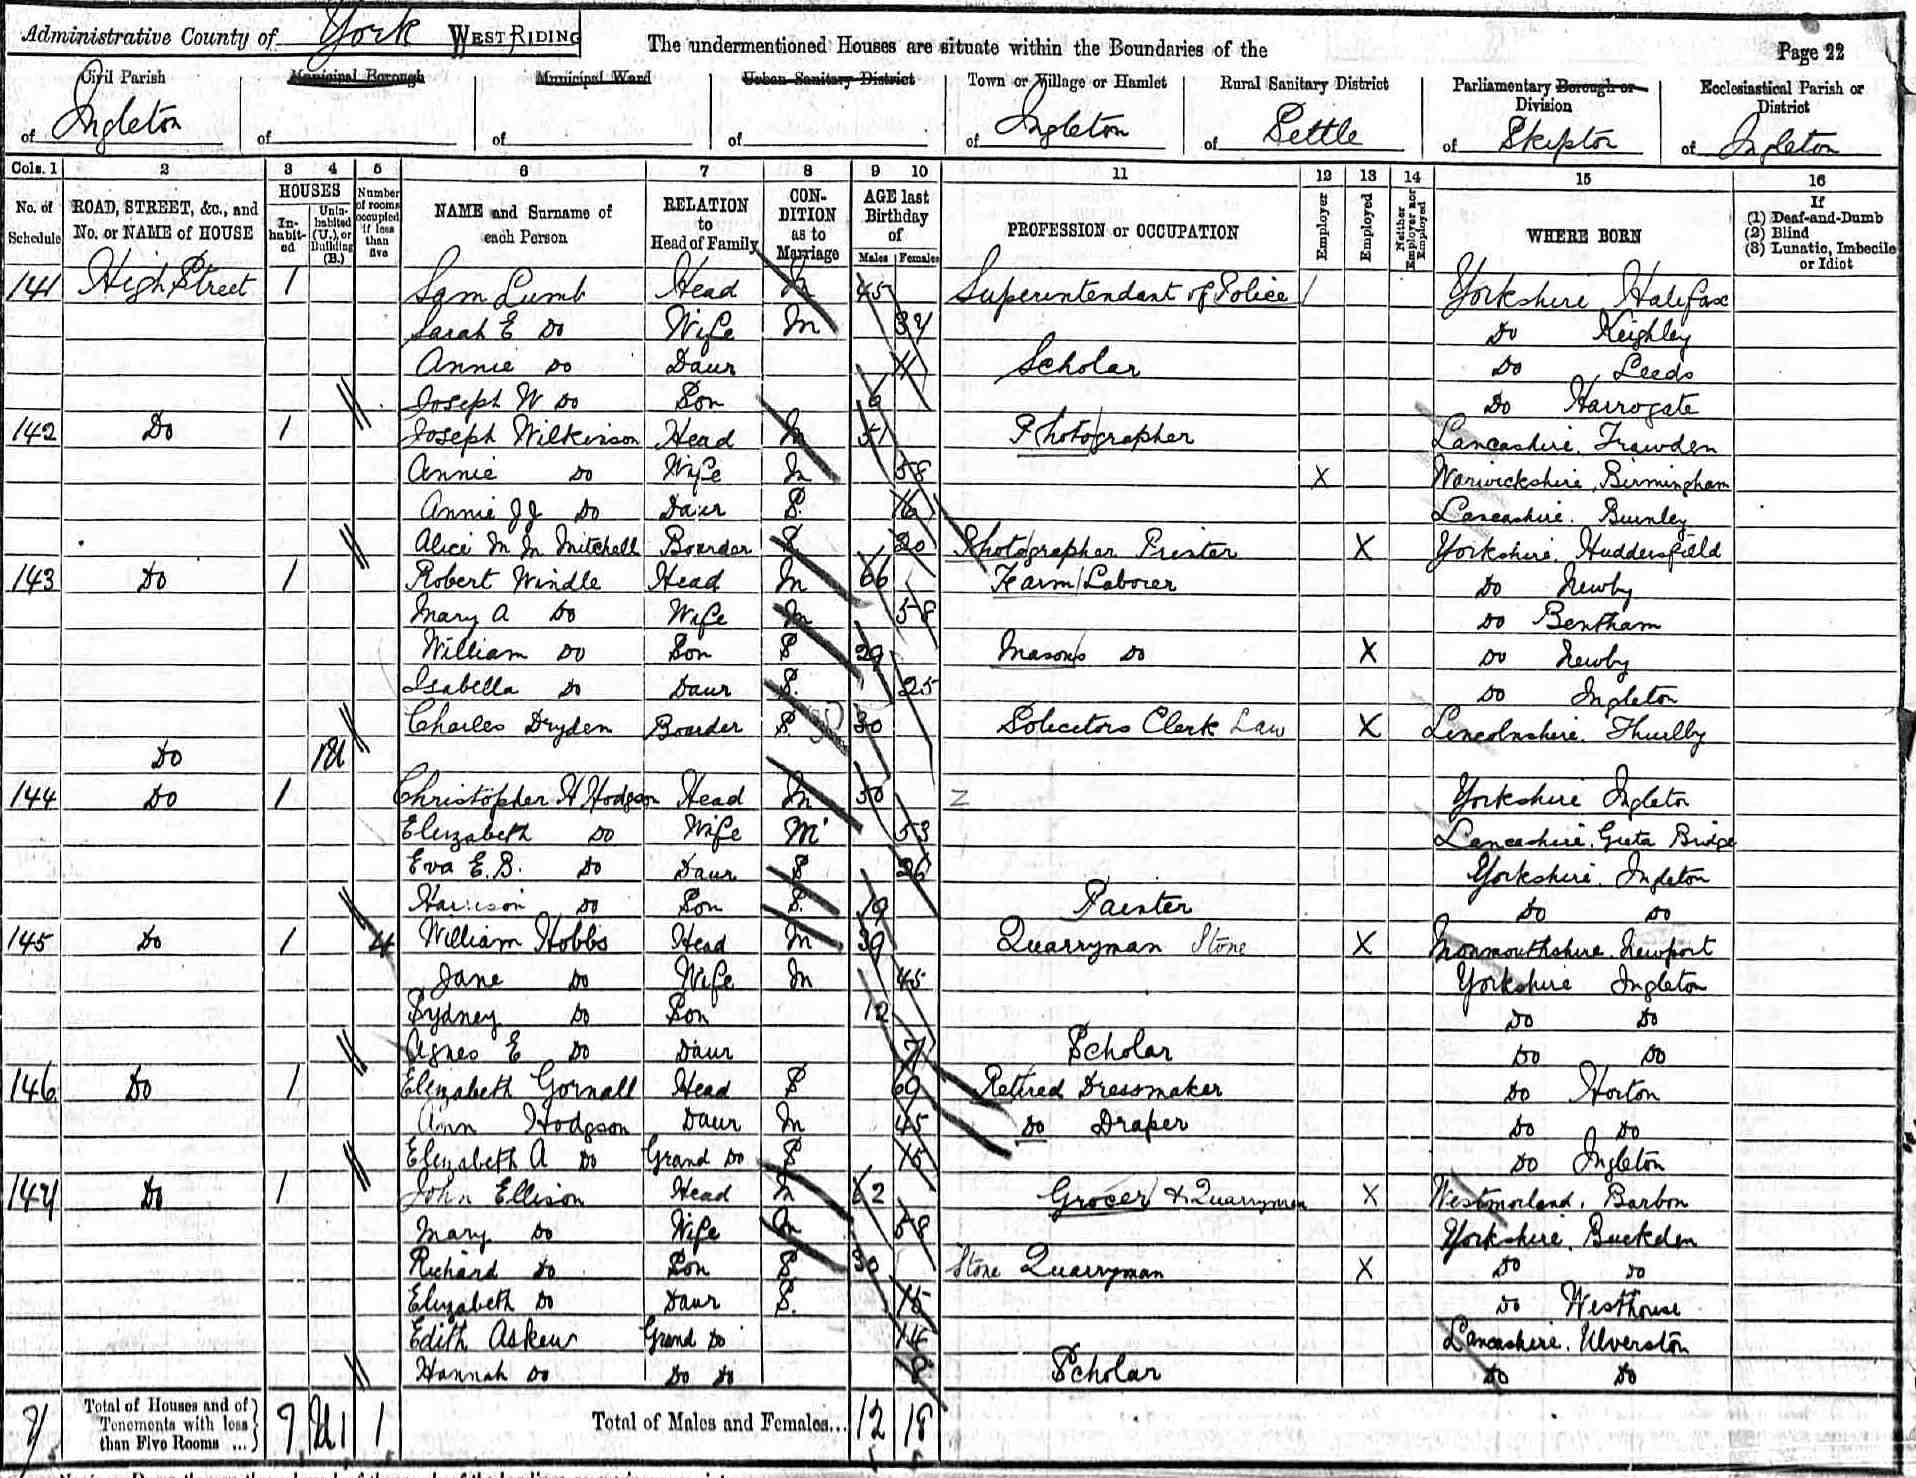 Administrative County of York WEST RIDING
The undermentioned Houses are situate within the Boundaries of the
Page 22
Civil Parish of Ingleton
Municipal Borough of
Municipal Ward of
Urban Sanitary District of
Town or Village or Hamlet of Ingleton
Rural Sanitary District of Settle
Parliamentary Borough or Division of Skipton
Ecclesiastical Parish or District of Ingleton
Cols. 1 2 3 4 5 6 7 8 9 10 11 12 13 14 15 16
No. of Schedule
ROAD, STREET, &c., and No. or NAME of HOUSE
HOUSES
Inhabited
Uninhabited (U.), or Building (B.)
Number of rooms occupied if less than five
NAME and Surname of each Person
RELATION to Head of Family
CONDITION as to Marriage
AGE last Birthday of
Males Females
PROFESSION or OCCUPATION
Employer
Employed
Neither Employer nor Employed
WHERE BORN
If (1) Deaf-and-Dumb (2) Blind (3) Lunatic, Imbecile or Idiot
141 High Street 1 Sam Lumb Head M 45 Superintendant of Police / Yorkshire Halifax
Sarah E Do Wife M 34 Do Keighley
Annie Do Daur 11 Scholar Do Leeds
Joseph W Do Son 6 Do Harrogate
142 Do 1 Joseph Wilkinson Head M 51 Photographer Lancashire. Trawden
Annie Do Wife M 58 X Warwickshire, Birmingham
Annie J J Do Daur S. 16 Lancashire. Burnley
Alice M M Mitchell Boarder S 20 Photographer Printer X Yorkshire. Huddersfield
143 Do 1 Robert Windle Head M 66 Farm Laborer Do Newby
Mary A Do Wife M 58 Do Bentham
William Do Son S 29 Masons Do X Do Newby
Isabella Do Daur S. 25 Do Ingleton
Charles Dryden Boarder S 30 Solicitors Clerk Law X Lincolnshire. Thurlby
Do 1U
144 Do 1 Christopher H Hodgson Head M 50 Yorkshire Ingleton
Elizabeth Do Wife M 53 Lancashire. Greta Bridge
Eva E.B. Do Daur S 26 Yorkshire. Ingleton
Harrison Do Son S. 19 Painter Do Do
145 Do 1 4 William Hobbs Head M 39 Quarryman Stone X Monmouthshire. Newport
Jane Do Wife M 45 Yorkshire Ingleton
Sydney Do Son 12 Do Do
Agnes E Do Daur 7 Scholar Do Do
146 Do 1 Elizabeth Gornall Head S 69 Retired Dressmaker Do Horton
Ann Hodgson Daur M 45 Do Draper Do Do
Elizabeth A Do Grand Do S 15 Do Ingleton
147 Do 1 John Ellison Head M 62 Grocer & Quarryman X Westmorland. Barbon
Mary Do Wife M 58 Yorkshire. Buckden
Richard Do Son S 30 Stone Quarryman X Do Do
Elizabeth Do Daur S. 15 Do Westhouse
Edith Askew Grand Do 14 Lancashire. Ulverston
Hannah Do Do Do 8 Scholar Do Do
7 Total of Houses and of Tenements with less than Five Rooms ... 7 U1 1 Total of Males and Females... 12 18